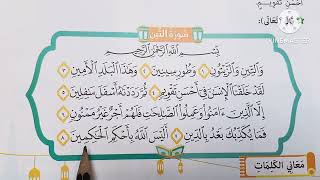 أَحْسَنِ تَقْوِيمٍ
قَالَ تَعَالَى:
MADE WITH
KINEMASTER
سُورَةُ التِّينِ
بِسْمِ اللَّهِ الرَّحْمَٰنِ الرَّحِيمِ
وَالتِّينِ وَالزَّيْتُونِ ١ وَطُورِ سِينِينَ ٢ وَهَٰذَا الْبَلَدِ الْأَمِينِ ٣
لَقَدْ خَلَقْنَا الْإِنسَٰنَ فِي أَحْسَنِ تَقْوِيمٍ ٤ ثُمَّ رَدَدْنَٰهُ أَسْفَلَ سَٰفِلِينَ ٥
إِلَّا الَّذِينَ ءَامَنُوا وَعَمِلُوا الصَّٰلِحَٰتِ فَلَهُمْ أَجْرٌ غَيْرُ مَمْنُونٍ ٦
فَمَا يُكَذِّبُكَ بَعْدُ بِالدِّينِ ٧ أَلَيْسَ اللَّهُ بِأَحْكَمِ الْحَٰكِمِينَ ٨
مَعَانِي الْكَلِمَاتِ